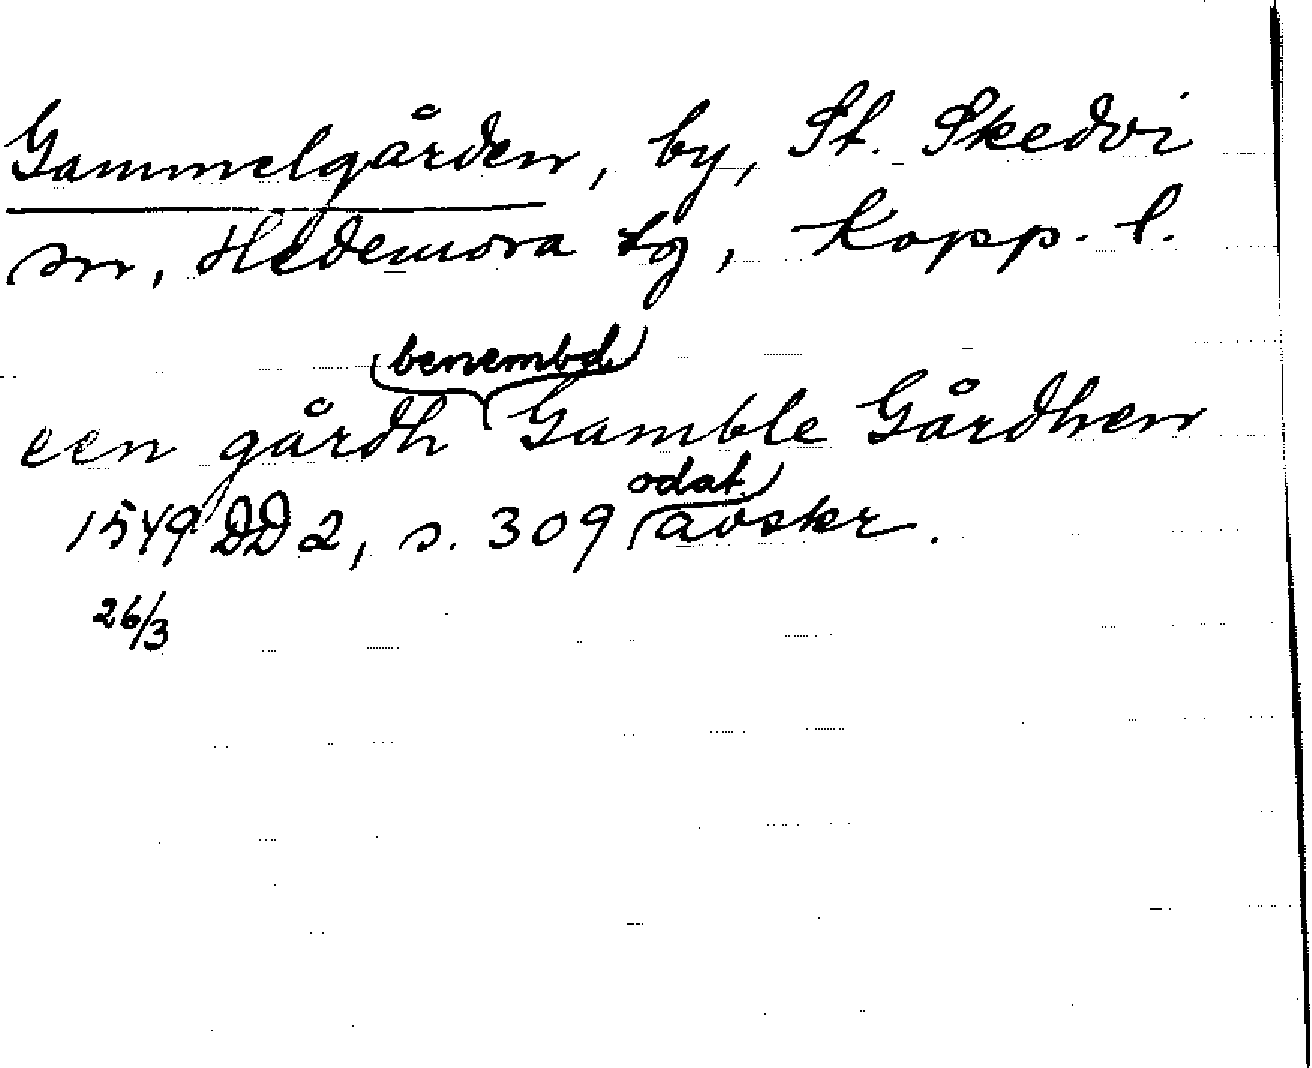 Gammelgården, by, St. Skedvi
sn, Hedemora tg, Kopp. l.
een gårdh benembd Gamble Gårdhen
1549 DD 2, s. 309 odat avskr.
26/3